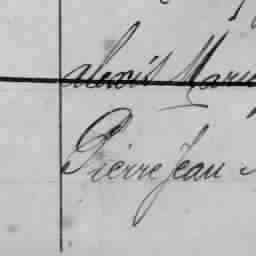 alexis Marie
Pierre Jean